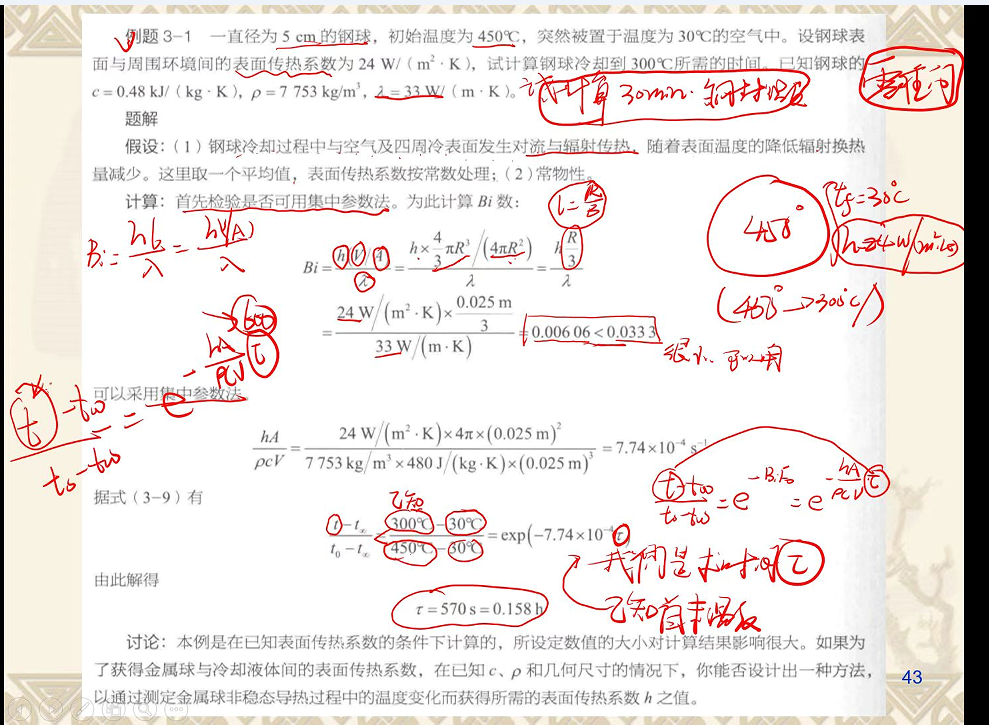 例题 3-1 一直径为 5 cm 的钢球，初始温度为 450℃，突然被置于温度为 30℃的空气中。设钢球表
面与周围环境间的表面传热系数为 24 W/（m²·K），试计算钢球冷却到 300℃所需的时间。已知钢球的
c＝0.48 kJ/（kg·K），ρ＝7 753 kg/m³，λ＝33 W/（m·K）。
试计算 30min. 钢球温度
题解
假设：（1）钢球冷却过程中与空气及四周冷表面发生对流与辐射传热，随着表面温度的降低辐射换热
量减少。这里取一个平均值，表面传热系数按常数处理；（2）常物性。
计算：首先检验是否可用集中参数法。为此计算 Bi 数：
l=R/3
450°
tf=30℃
h=24W/(m²·℃)
(450°->300℃)
Bi=hl/λ=h(V/A)/λ
Bi = h(V/A)/λ = h×4/3πR³/(4πR²)/λ = h R/3/λ
= 24 W/(m²·K)×0.025 m/3 / 33 W/(m·K) = 0.006 06<0.033 3
很小 可以用
可以采用集中参数法。
t-t∞/t0-t∞=e^-hA/ρcV τ
hA/ρcV = 24 W/(m²·K)×4π×(0.025 m)²/7 753 kg/m³×480 J/(kg·K)×(0.025 m)³ =7.74×10⁻⁴ s⁻¹
t-t∞/t0-t∞=e^-Bi·Fo=e^-hA/ρcV τ
据式（3-9）有
已知
t−t∞/t₀−t∞ = 300℃−30℃/450℃−30℃ =exp(−7.74×10⁻⁴τ
我们是求时间τ
由此解得
已知首末温度
τ＝570 s＝0.158 h
讨论：本例是在已知表面传热系数的条件下计算的，所设定数值的大小对计算结果影响很大。如果为
了获得金属球与冷却液体间的表面传热系数，在已知 c、ρ 和几何尺寸的情况下，你能否设计出一种方法，
以通过测定金属球非稳态导热过程中的温度变化而获得所需的表面传热系数 h 之值。
43